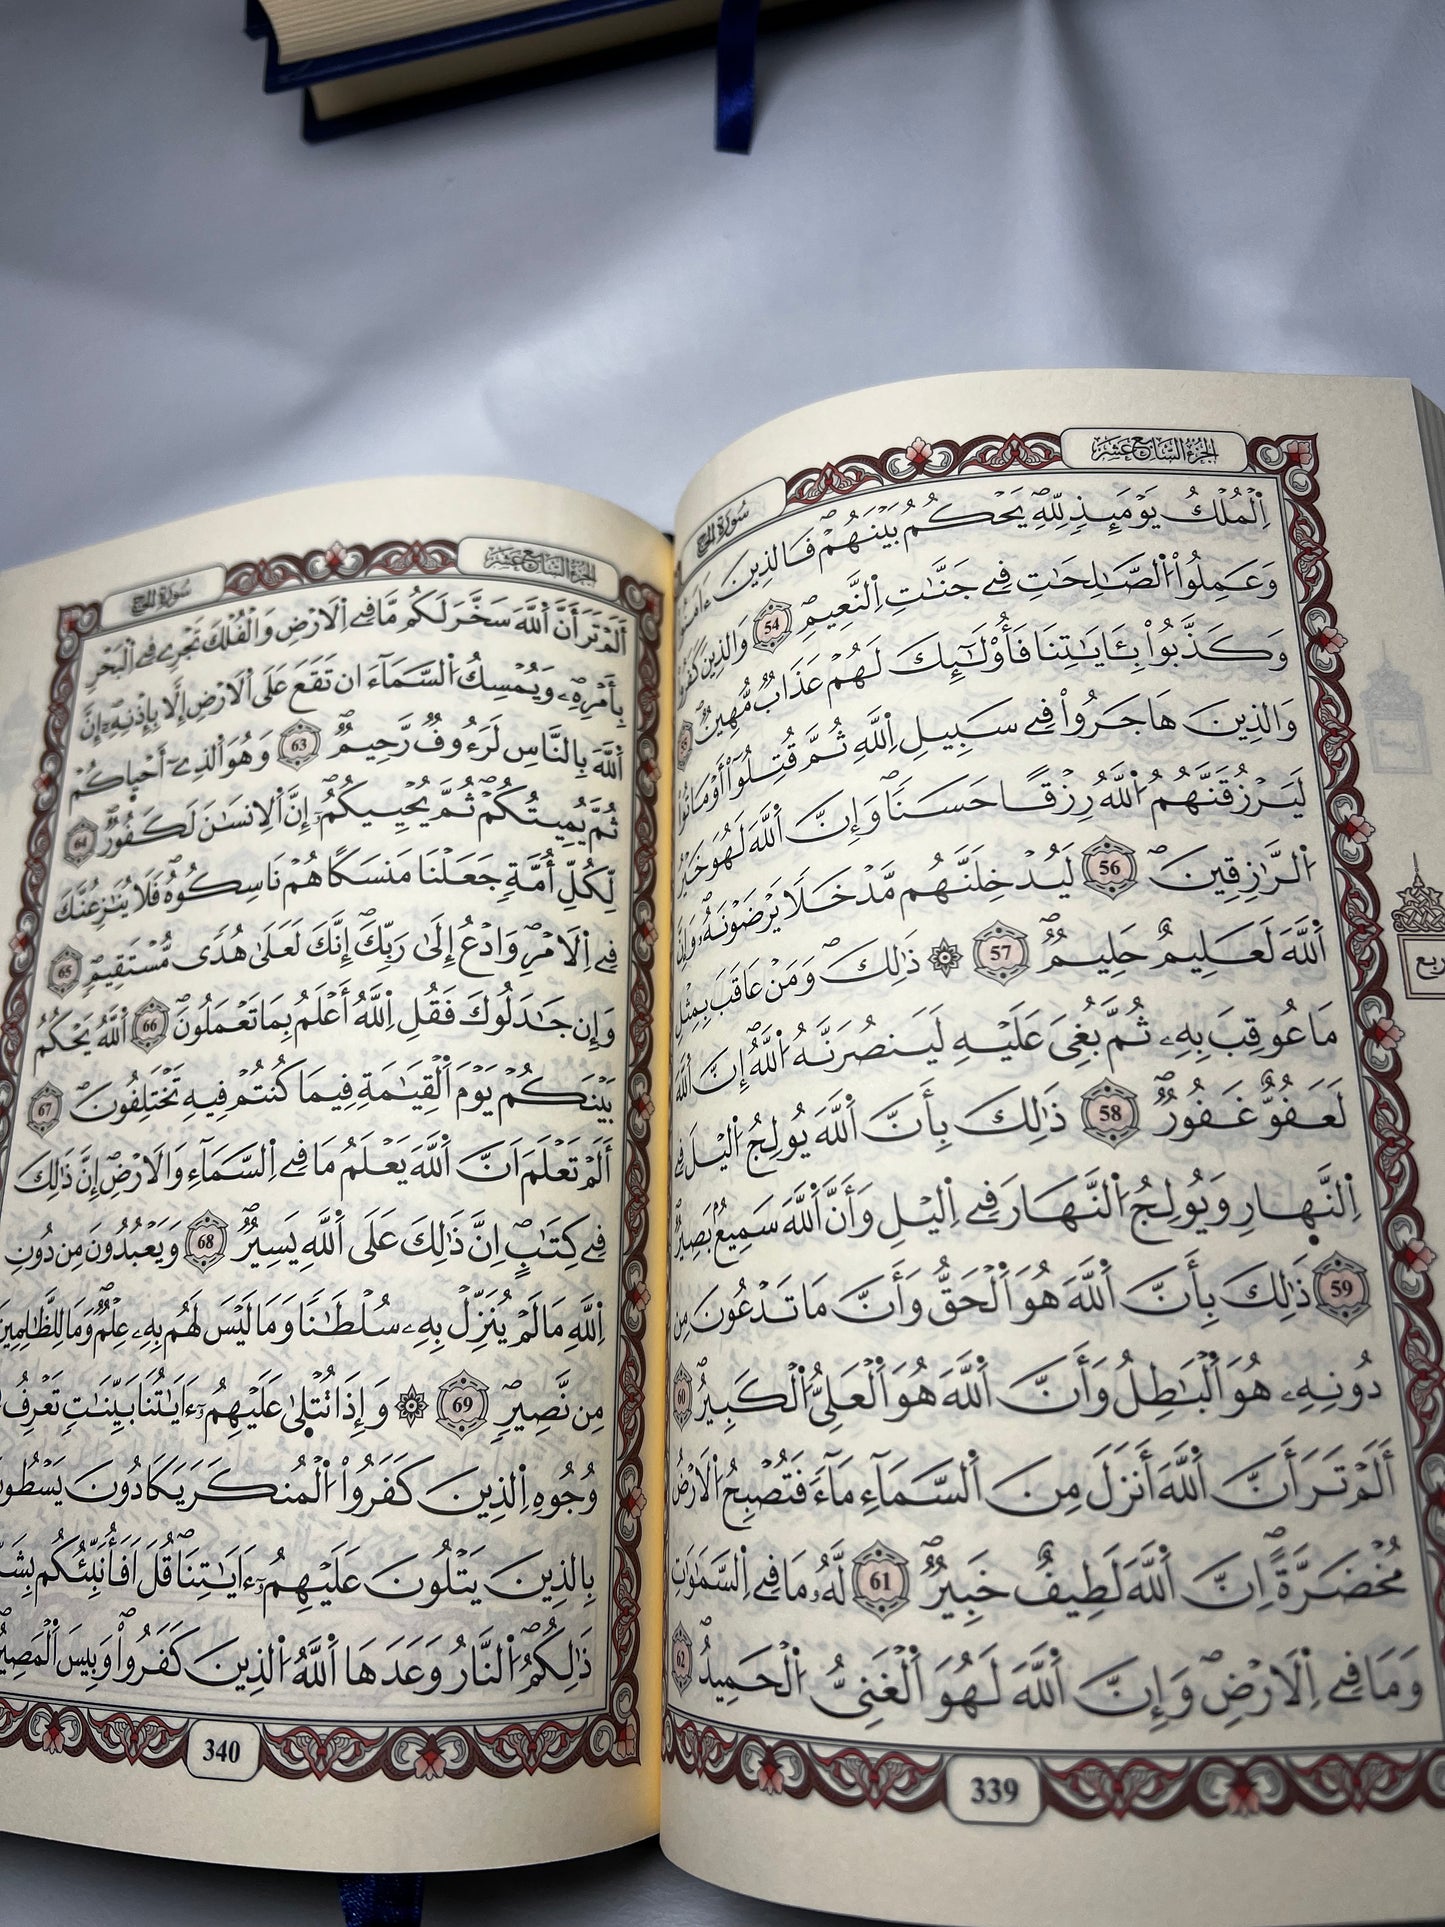 الجزء السابع عشر
سورة الحج
اَ۬لْمُلْكُ يَوْمَئِذٍ لِّلهِ يَحْكُمُ بَيْنَهُمْ فَالذِينَ ءَامَنُواْ
وَعَمِلُواْ اُ۬لصَّٰلِحَٰتِ فِے جَنَّٰتِ اِ۬لنَّعِيمِ 54 وَالذِينَ كَفَرُواْ
وَكَذَّبُواْ بِـَٔايَٰتِنَا فَأُوْلَٰٓئِكَ لَهُمْ عَذَابٌ مُّهِينٌ 55
وَالذِينَ هَاجَرُواْ فِے سَبِيلِ اِ۬للَّهِ ثُمَّ قُتِلُوٓاْ أَوْ مَاتُواْ
لَيَرْزُقَنَّهُمُ اُ۬للَّهُ رِزْقًا حَسَنًا وَإِنَّ اَ۬للَّهَ لَهُوَ خَيْرُ
اُ۬لرَّٰزِقِينَ 56 لَيُدْخِلَنَّهُم مَّدْخَلًا يَرْضَوْنَهُۥ وَإِنَّ
اَ۬للَّهَ لَعَلِيمٌ حَلِيمٌ 57 ۞ ذَٰلِكَ وَمَنْ عَاقَبَ بِمِثْلِ
مَا عُوقِبَ بِهِۦ ثُمَّ بُغِيَ عَلَيْهِ لَيَنصُرَنَّهُ اُ۬للَّهُ إِنَّ اَ۬للَّهَ
لَعَفُوٌّ غَفُورٌ 58 ذَٰلِكَ بِأَنَّ اَ۬للَّهَ يُولِجُ اُ۬ليْلَ فِے
اِ۬لنَّهَارِ وَيُولِجُ اُ۬لنَّهَارَ فِے اِ۬ليْلِ وَأَنَّ اَ۬للَّهَ سَمِيعٌۢ بَصِيرٌ
59 ذَٰلِكَ بِأَنَّ اَ۬للَّهَ هُوَ اَ۬لْحَقُّ وَأَنَّ مَا تَدْعُونَ مِن
دُونِهِۦ هُوَ اَ۬لْبَٰطِلُ وَأَنَّ اَ۬للَّهَ هُوَ اَ۬لْعَلِيُّ اُ۬لْكَبِيرُ 60
أَلَمْ تَرَ أَنَّ اَ۬للَّهَ أَنزَلَ مِنَ اَ۬لسَّمَآءِ مَآءً فَتُصْبِحُ اُ۬لَارْضُ
مُخْضَرَّةً اِنَّ اَ۬للَّهَ لَطِيفٌ خَبِيرٌ 61 لَّهُۥ مَا فِے اِ۬لسَّمَٰوَٰتِ
وَمَا فِے اِ۬لَارْضِ وَإِنَّ اَ۬للَّهَ لَهُوَ اَ۬لْغَنِيُّ اُ۬لْحَمِيدُ 62
ربع
339
الجزء السابع عشر
سورة الحج
أَلَمْ تَرَ أَنَّ اَ۬للَّهَ سَخَّرَ لَكُم مَّا فِے اِ۬لَارْضِ وَالْفُلْكَ تَجْرِے فِے اِ۬لْبَحْرِ
بِأَمْرِهِۦ وَيُمْسِكُ اُ۬لسَّمَآءَ ان تَقَعَ عَلَى اَ۬لَارْضِ إِلَّا بِإِذْنِهِۦٓ إِنَّ
اَ۬للَّهَ بِالنَّاسِ لَرَءُوفٌ رَّحِيمٌ 63 وَهُوَ اَ۬لذِےٓ أَحْي۪اكُمْ
ثُمَّ يُمِيتُكُمْ ثُمَّ يُحْيِيكُمُۥٓ إِنَّ اَ۬لِانسَٰنَ لَكَفُورٌ 64
لِّكُلِّ أُمَّةٍ جَعَلْنَا مَنسَكًا هُمْ نَاسِكُوهُ فَلَا يُنَٰزِعُنَّكَ
فِے اِ۬لَامْرِ وَادْعُ إِلَىٰ رَبِّكَ إِنَّكَ لَعَلَىٰ هُدًى مُّسْتَقِيمٍ 65
وَإِن جَٰدَلُوكَ فَقُلِ اِ۬للَّهُ أَعْلَمُ بِمَا تَعْمَلُونَ 66 اَ۬للَّهُ يَحْكُمُ
بَيْنَكُمْ يَوْمَ اَ۬لْقِيَٰمَةِ فِيمَا كُنتُمْ فِيهِ تَخْتَلِفُونَ 67
أَلَمْ تَعْلَمَ اَنَّ اَ۬للَّهَ يَعْلَمُ مَا فِے اِ۬لسَّمَآءِ وَالَارْضِ إِنَّ ذَٰلِكَ
فِے كِتَٰبٍ اِنَّ ذَٰلِكَ عَلَى اَ۬للَّهِ يَسِيرٌ 68 وَيَعْبُدُونَ مِن دُونِ
اِ۬للَّهِ مَا لَمْ يُنَزِّلْ بِهِۦ سُلْطَٰنًا وَمَا لَيْسَ لَهُم بِهِۦ عِلْمٌ وَمَا لِلظَّٰلِمِينَ
مِن نَّصِيرٍ 69 ۞ وَإِذَا تُتْل۪ىٰ عَلَيْهِمُۥٓ ءَايَٰتُنَا بَيِّنَٰتٍ تَعْرِفُ فِے
وُجُوهِ اِ۬لذِينَ كَفَرُواْ اُ۬لْمُنكَرَ يَكَادُونَ يَسْطُونَ
بِالذِينَ يَتْلُونَ عَلَيْهِمُۥٓ ءَايَٰتِنَا قُلَ اَفَأُنَبِّئُكُم بِشَرٍّ
ذَٰلِكُمُ اُ۬لنَّارُ وَعَدَهَا اَ۬للَّهُ اُ۬لذِينَ كَفَرُواْ وَبِيسَ اَ۬لْمَصِيرُ
340